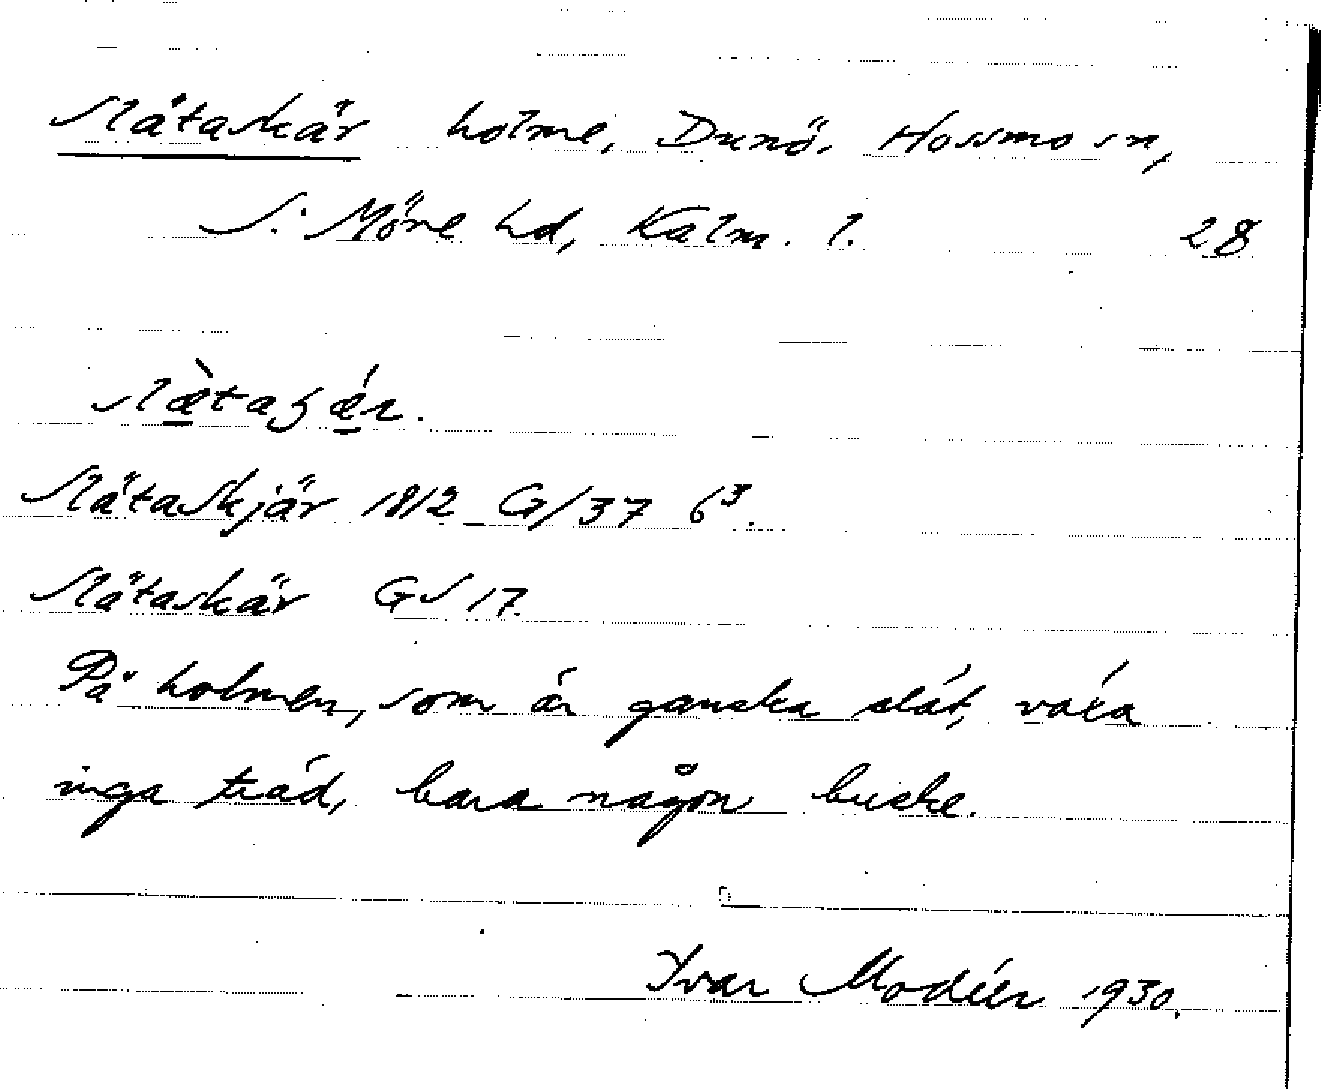 Slätaskär holme, Dunö, Hossmo sn,
S. Möre hd, Kalm. l. 28
slæ̀taʒǽr.
Slätaskjär 1812 G/37 6³.
Slätaskär GS 17
På holmen, som är ganska slät, växa
inga träd, bara någon buske.
Ivar Modéer 1930.